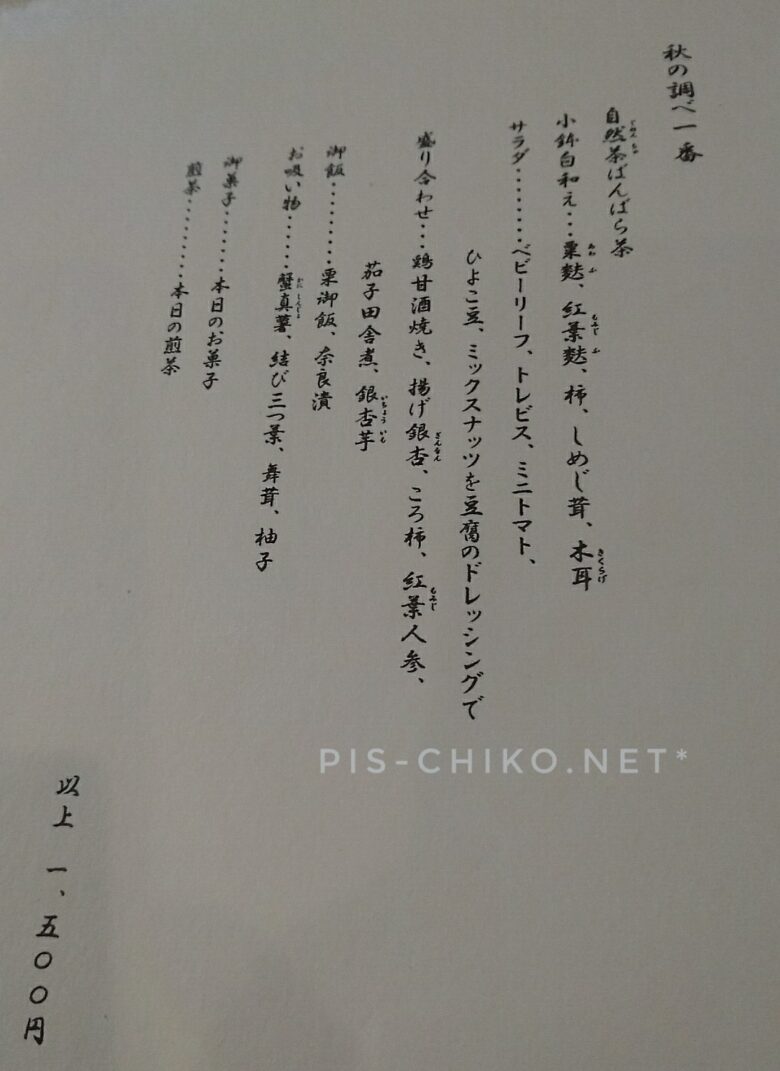 秋の調べ一番
自然茶ばんばら茶
小鉢白和え…粟麩、紅葉麩、柿、しめじ茸、木耳
サラダ………ベビーリーフ、トレビス、ミニトマト、
ひよこ豆、ミックスナッツを豆腐のドレッシングで
盛り合わせ…鶏甘酒焼き、揚げ銀杏、ころ柿、紅葉人参、
茄子田舎煮、銀杏芋
御飯………栗御飯、奈良漬
お吸い物……蟹真薯、結び三つ葉、舞茸、柚子
御菓子……本日のお菓子
煎茶………本日の煎茶
以上 一、五〇〇円
PIS-CHIKO.NET*